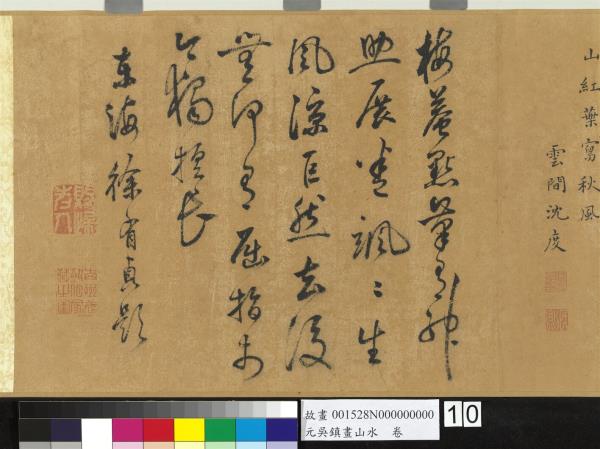 山紅葉寫秋風
雲間沈度
梅菴點筆有神
助展卷颯颯生
風涼巨然去後
無有屈指
今獨擅長
東海徐有貞題
故畫 001528N000000000
元吳鎮畫山水 卷
10